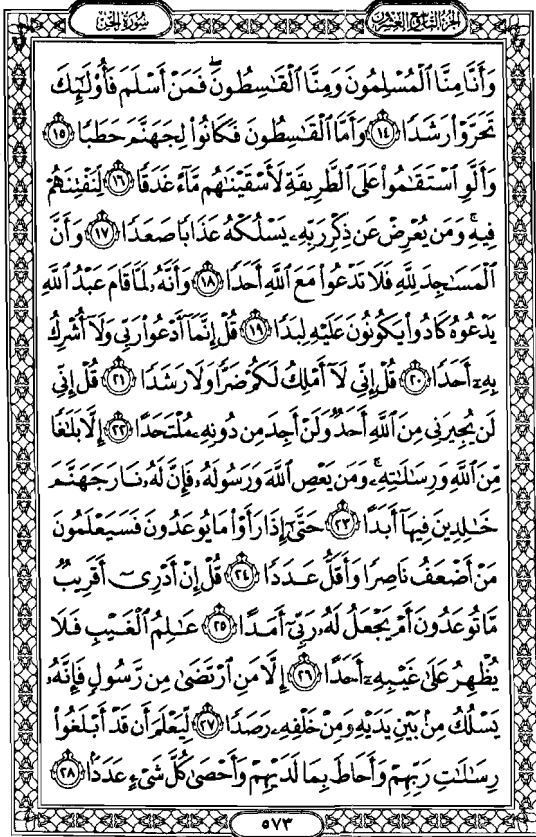 سورة الجن
الجزء التاسع والعشرون
وَأَنَّا مِنَّا ٱلْمُسْلِمُونَ وَمِنَّا ٱلْقَٰسِطُونَ ۖ فَمَنْ أَسْلَمَ فَأُو۟لَٰٓئِكَ
تَحَرَّوْا۟ رَشَدًا ١٤ وَأَمَّا ٱلْقَٰسِطُونَ فَكَانُوا۟ لِجَهَنَّمَ حَطَبًا ١٥
وَأَلَّوِ ٱسْتَقَٰمُوا۟ عَلَى ٱلطَّرِيقَةِ لَأَسْقَيْنَٰهُم مَّآءً غَدَقًا ١٦ لِّنَفْتِنَهُمْ
فِيهِ ۚ وَمَن يُعْرِضْ عَن ذِكْرِ رَبِّهِۦ يَسْلُكْهُ عَذَابًا صَعَدًا ١٧ وَأَنَّ
ٱلْمَسَٰجِدَ لِلَّهِ فَلَا تَدْعُوا۟ مَعَ ٱللَّهِ أَحَدًا ١٨ وَأَنَّهُۥ لَمَّا قَامَ عَبْدُ ٱللَّهِ
يَدْعُوهُ كَادُوا۟ يَكُونُونَ عَلَيْهِ لِبَدًا ١٩ قُلْ إِنَّمَآ أَدْعُوا۟ رَبِّى وَلَآ أُشْرِكُ
بِهِۦٓ أَحَدًا ٢٠ قُلْ إِنِّى لَآ أَمْلِكُ لَكُمْ ضَرًّا وَلَا رَشَدًا ٢١ قُلْ إِنِّى
لَن يُجِيرَنِى مِنَ ٱللَّهِ أَحَدٌ وَلَنْ أَجِدَ مِن دُونِهِۦ مُلْتَحَدًا ٢٢ إِلَّا بَلَٰغًا
مِّنَ ٱللَّهِ وَرِسَٰلَٰتِهِۦ ۚ وَمَن يَعْصِ ٱللَّهَ وَرَسُولَهُۥ فَإِنَّ لَهُۥ نَارَ جَهَنَّمَ
خَٰلِدِينَ فِيهَآ أَبَدًا ٢٣ حَتَّىٰٓ إِذَا رَأَوْا۟ مَا يُوعَدُونَ فَسَيَعْلَمُونَ
مَنْ أَضْعَفُ نَاصِرًا وَأَقَلُّ عَدَدًا ٢٤ قُلْ إِنْ أَدْرِىٓ أَقَرِيبٌ
مَّا تُوعَدُونَ أَمْ يَجْعَلُ لَهُۥ رَبِّىٓ أَمَدًا ٢٥ عَٰلِمُ ٱلْغَيْبِ فَلَا
يُظْهِرُ عَلَىٰ غَيْبِهِۦٓ أَحَدًا ٢٦ إِلَّا مَنِ ٱرْتَضَىٰ مِن رَّسُولٍ فَإِنَّهُۥ
يَسْلُكُ مِنۢ بَيْنِ يَدَيْهِ وَمِنْ خَلْفِهِۦ رَصَدًا ٢٧ لِّيَعْلَمَ أَن قَدْ أَبْلَغُوا۟
رِسَٰلَٰتِ رَبِّهِمْ وَأَحَاطَ بِمَا لَدَيْهِمْ وَأَحْصَىٰ كُلَّ شَىْءٍ عَدَدًۢا ٢٨
٥٧٣